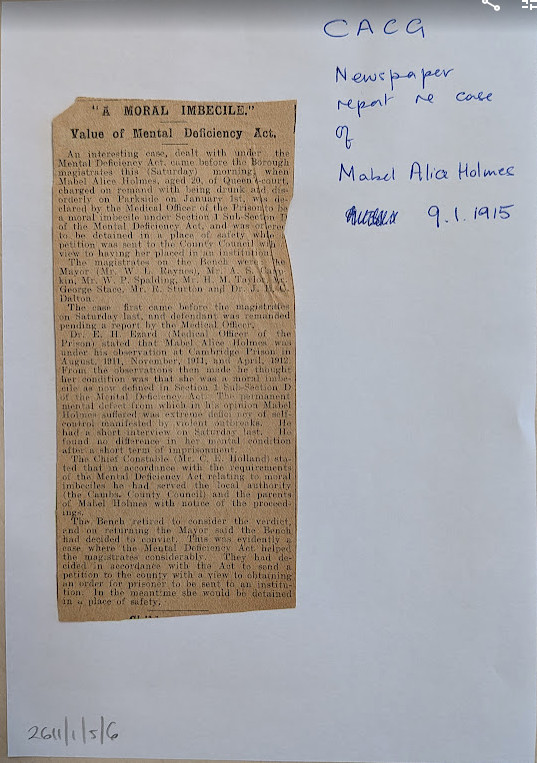 CACG
Newspaper
report re case
of
Mabel Alice Holmes
9.1.1915
"A MORAL IMBECILE."
Value of Mental Deficiency Act.
An interesting case, dealt with under the
Mental Deficiency Act, came before the Borough
magistrates this (Saturday) morning, when
Mabel Alice Holmes, aged 20, of Queen's-court,
charged on remand with being drunk and dis-
orderly on Parkside on January 1st, was de-
clared by the Medical Officer of the Prison to be
a moral imbecile under Section 1 Sub-Section D
of the Mental Deficiency Act, and was ordered
to be detained in a place of safety while a
petition was sent to the County Council with
view to having her placed in an institution.
The magistrates on the Bench were the
Mayor (Mr. W. L. Raynes), Mr. A. S.
kin, Mr. W. P. Spalding, Mr. H. M. Taylor,
George Stace, Mr. R. Sturton and Dr. J.
Dalton.
The case first came before the magistrates
on Saturday last, and defendant was remanded
pending a report by the Medical Officer.
Dr. E. H. Ezard (Medical Officer of the
Prison) stated that Mabel Alice Holmes was
under his observation at Cambridge Prison in
August, 1911, November, 1911, and April, 1912.
From the observations then made he thought
her condition was that she was a moral imbe-
cile as now defined in Section 1 Sub-Section D
of the Mental Deficiency Act. The permanent
mental defect from which in his opinion Mabel
Holmes suffered was extreme deficiency of self-
control manifested by violent outbreaks. He
had a short interview on Saturday last. He
found no difference in her mental condition
after a short term of imprisonment.
The Chief Constable (Mr. C. E. Holland) sta-
ted that in accordance with the requirements
of the Mental Deficiency Act relating to moral
imbeciles he had served the local authority
(the Cambs. County Council) and the parents
of Mabel Holmes with notice of the proceed-
ings.
The Bench retired to consider the verdict,
and on returning the Mayor said the Bench
had decided to convict. This was evidently a
case where the Mental Deficiency Act helped
the magistrates considerably. They had de-
cided in accordance with the Act to send a
petition to the county with a view to obtaining
an order for prisoner to be sent to an institu-
tion. In the meantime she would be detained
in a place of safety.
2611/1/5/6